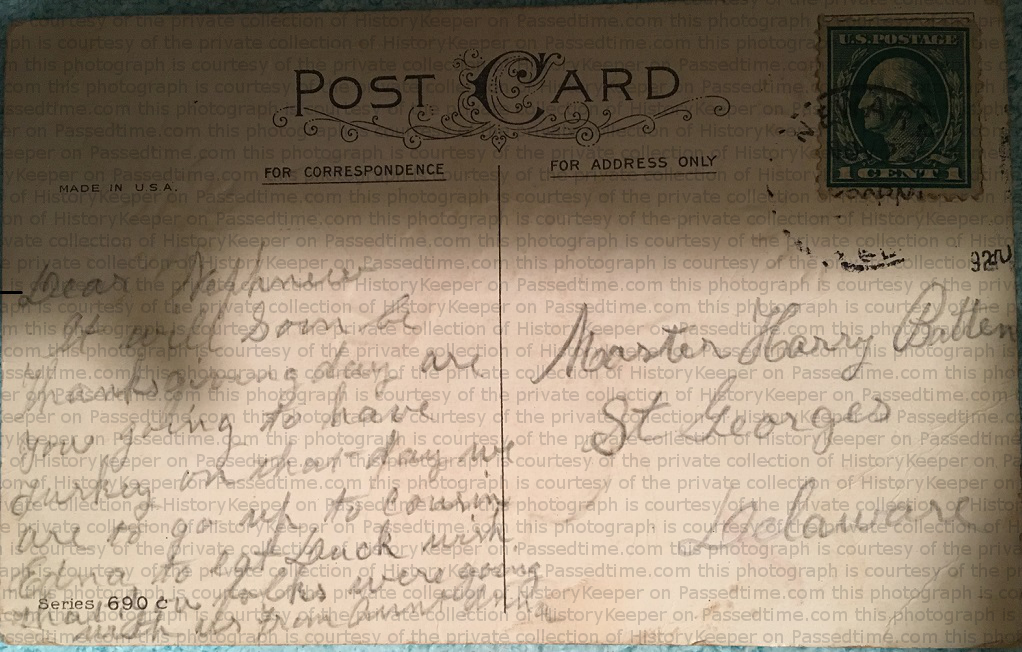 POST CARD
FOR CORRESPONDENCE
FOR ADDRESS ONLY
MADE IN U.S.A.
U.S. POSTAGE
1 CENT 1
NEWARK
DEL.
Dear Nephnew
It will Soon be
Thanksgiving day are
you going to have
turkey on that day we
are to go up to Cousin
Edna to eat Duck wish
folks were going
with us from
Series 690 C
Master Harry Batten
St Georges
Delaware
this photograph is courtesy of the private collection of HistoryKeeper on Passedtime.com